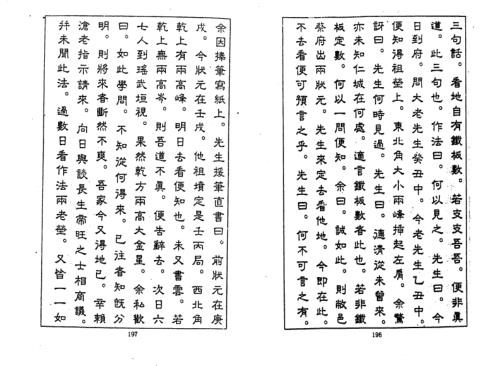 三句話。看地自有鐵板數。若支支吾吾。便非真
道。此三句也。作法曰。何以見之。先生曰。今
日到府。問大老先生癸丑中。今老先生乙丑中。
便知得祖塋上。東北角大小兩峰挿起左肩。余驚
訝曰。先生何時見過。先生曰。德清從未曾來。
亦未知仁城在何處。適言鐵板數者此也。若非鐵
板定數。何以一問便知。余曰。誠如此。則敝邑
蔡府出兩狀元。先生來定去看他地。今即在此。
不去看便可預言之乎。先生曰。何不可言之有。
196
余因捧筆寫紙上。先生援筆直書曰。前狀元在庚
戌。今狀元在壬戌。他祖墳定是壬丙局。西北角
乾上有兩高峰。明日去看便知也。末又書雲。若
乾上無兩高岑。則吾道不真。便告辭去。次日六
七人到瑤武垣視。果然乾方兩高大金星。余私歎
曰。如此學問。不知從何得來。已往者知既分
明。則將來者斷然不爽。吾家今又得地已。幸賴
滄老指示請來。向日與談長生帝旺之士相商議。
幷未聞此法。過數日看作法兩老塋。又皆一一如
197